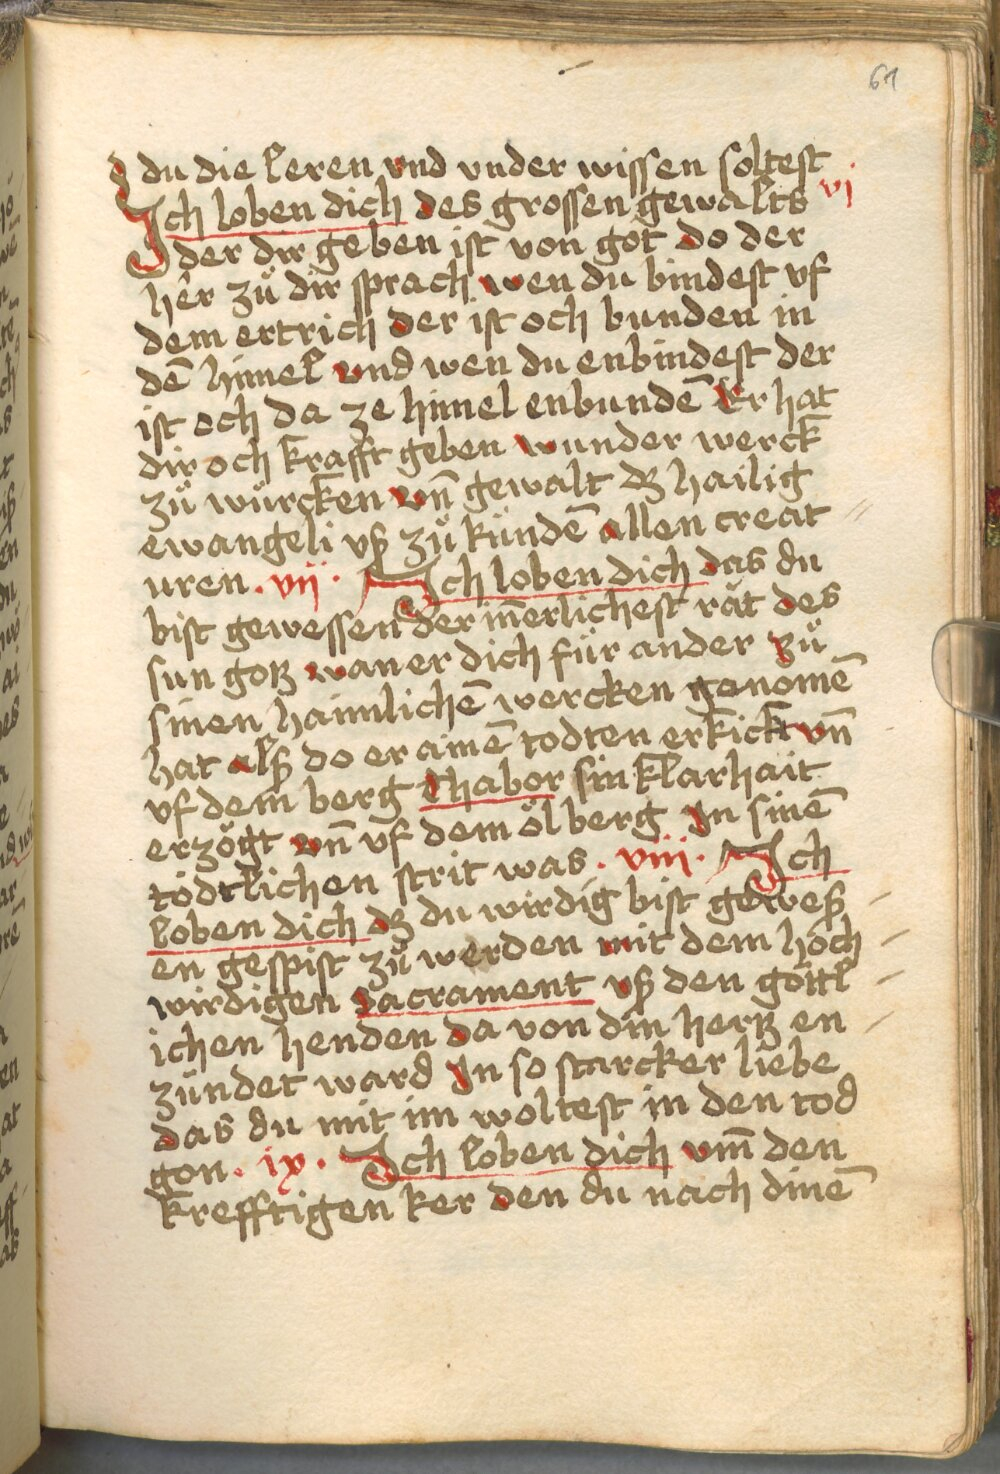 61
du die leren vnd vnder wissen soltest
Ich loben dich des grossen gewalts vj
der dir geben ist von got do der
her zů dir sprach wen du bindest vf
dem ertrich der ist och bunden in
dē himel vnd wen du enbindest der
ist och da ze himel enbundē Er hat
dir och krafft geben wunder werck
zů würcken vn̄ gewalt dz hailig
ewangeli vß zů kündē allen creat
uren . vij . Ich loben dich das du
bist gewessen der in̄erlichest rät des
sun gotz wan er dich für ander zů
sinen haimlichē wercken genomē
hat alß do er ainē todten erkickt vn̄
vf dem berg Thabor sin klarhait
erzögt vn̄ vf dem ölberg In sinē
tödtlichen strit was . viii . Ich
loben dich dz du wirdig bist geweß
en gespist zů werden mit dem hoch
wirdigen Sacrament vß den göttl
ichen henden da von din hertz en
zündet ward In so starcker liebe
das du mit im woltest in den tod
gon . ix . Ich loben dich vm̄ den
krefftigen ker den du nach dinē